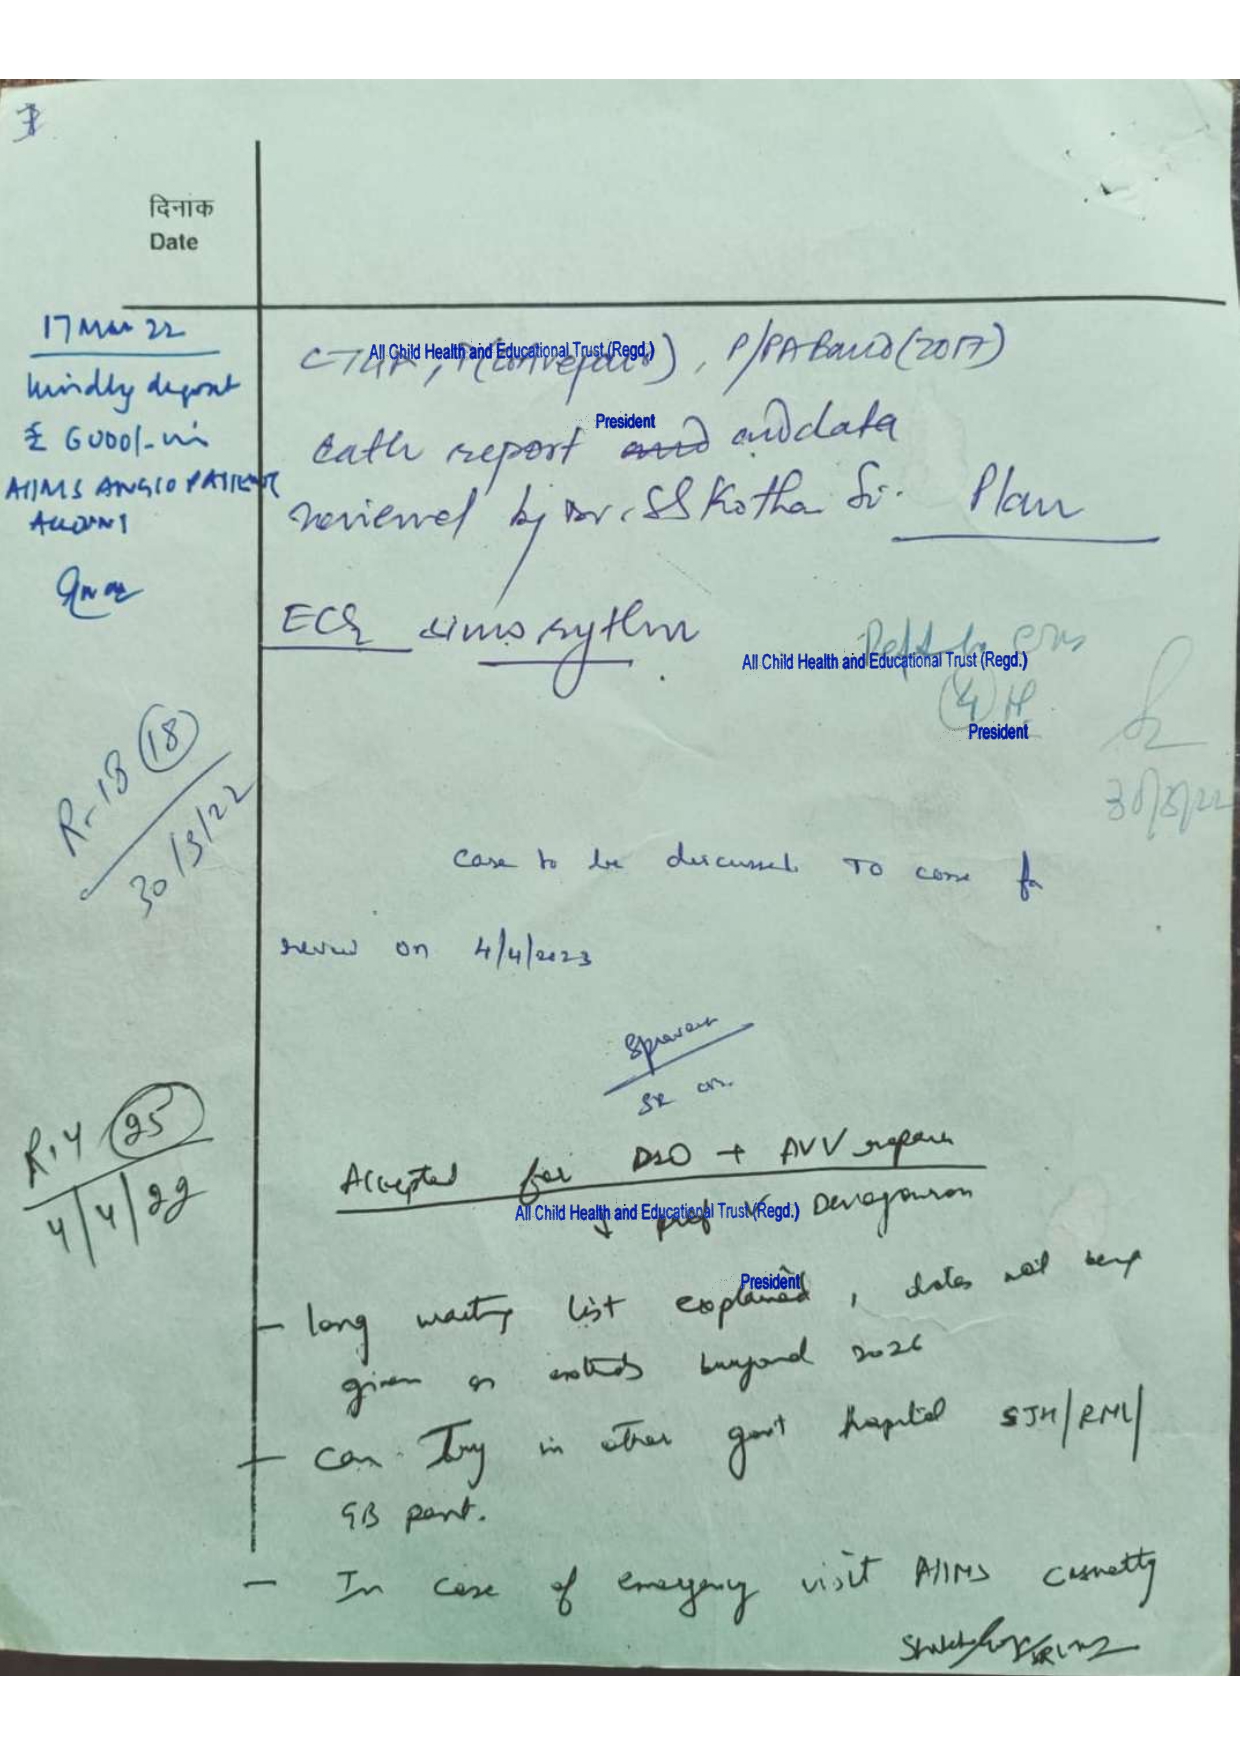 दिनाक
Date
17 Mar 22
kindly deposit
₹ 6000/- in
AIIMS ANGIO PATIENT
ACCOUNT
All Child Health and Educational Trust (Regd.)
President
P/PA Band (2017)
cath report and data
reviewed by Dr. SS Kothari Sir. Plan
ECG sinus rythm
All Child Health and Educational Trust (Regd.)
President
30/3/22
R-18 18
30/3/22
case to be discussed TO come for
review on 4/4/2023
SR
R-4 25
4/4/22
Accepted for DSO + AVV repair
All Child Health and Educational Trust (Regd.)
Prof Devagourou
President
- long waiting list explained, dates not being
given as extends beyond 2026
- can Try in other govt hospital SJH/RML/
GB pant.
- In case of emergency visit AIIMS casualty